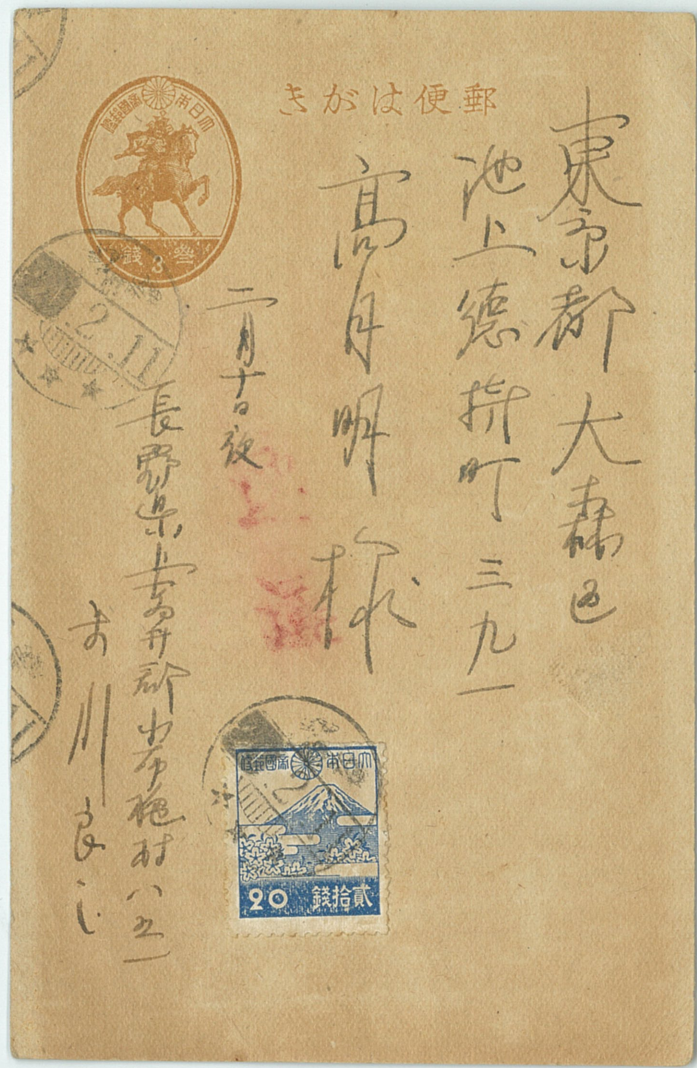 郵便はがき
大日本帝國郵便
參錢 3
東京都大森区
池上徳持町三九一
高月明様
二月十日夜
長野県上高井郡
村八五一
川良
22 2.11
大日本帝國郵便
20 貳拾錢